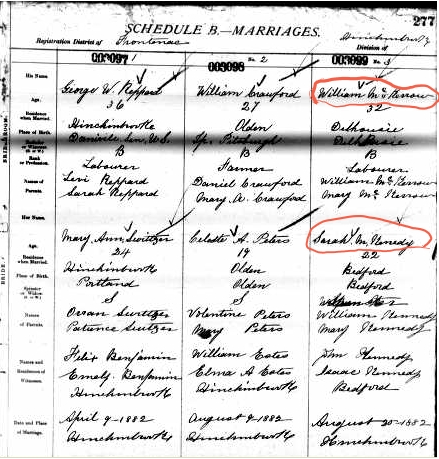 277
SCHEDULE B.—MARRIAGES.
Registration District of Frontenac
Division of Hinchinbrooke
003097 1
003098 No. 2
003099 No. 3
BRIDEGROOM.
His Name George W. Reppard William Crawford William McKerrow
Age. 36 27 32
Residence when Married. Hinchinbrooke Olden Dalhousie
Place of Birth. Tp. Pittsburgh Dalhousie
B B B
Rank or Profession. Labourer Farmer Labourer
Names of Parents. Levi Reppard Daniel Crawford William McKerrow
Sarah Reppard Mary A. Crawford Mary McKerrow
BRIDE.
Her Name Mary Ann Switzer Celeste A. Peters Sarah M. Kenedy
Age. 24 19 22
Residence when Married. Hinchinbrooke Olden Bedford
Place of Birth. Portland Olden Bedford
Spinster or Widow. S S Spinster
Names of Parents. Orvan Switzer Volentine Peters William Kennedy
Patience Switzer Mary Peters Mary Kennedy
Names and Residences of Witnesses. Felix Benjamin William Estes John Kennedy
Emely Benjamin Elma A Estes Isaac Kennedy
Hinchinbrooke Hinchinbrooke Bedford
Date and Place of Marriage. April 9-1882 August 9-1882 August 20-1882
Hinchinbrooke Hinchinbrooke Hinchinbrooke